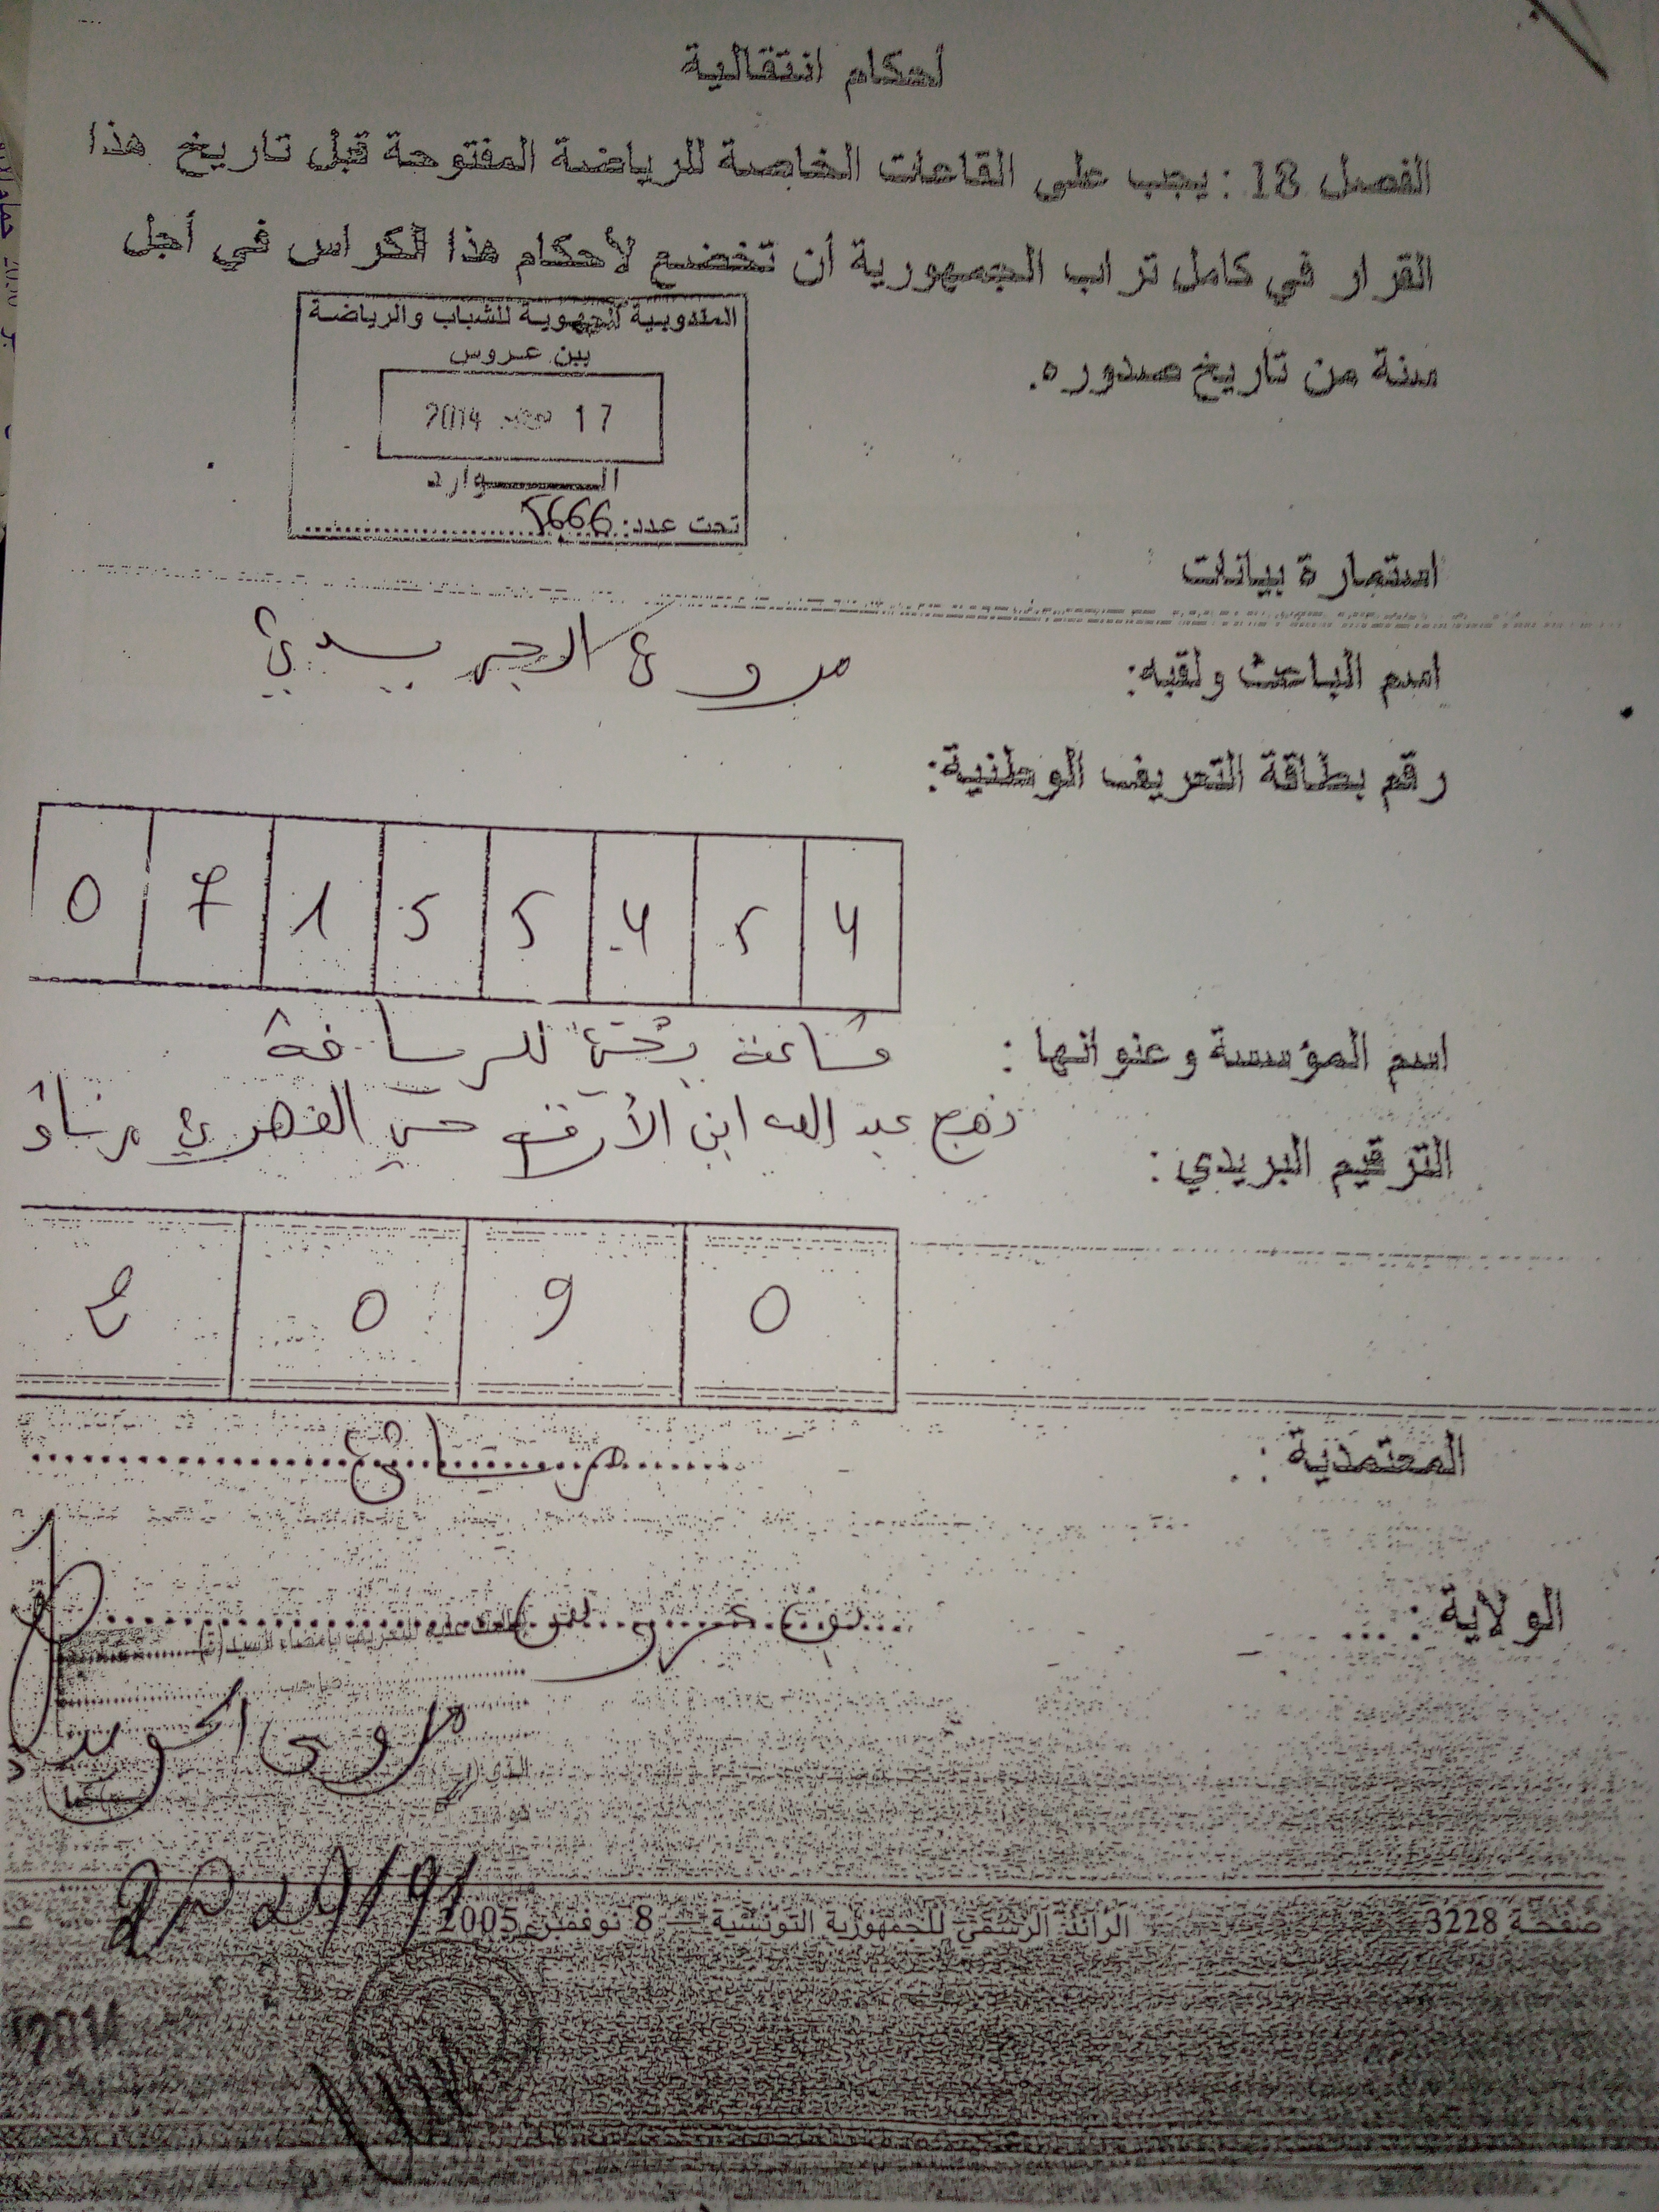 أحكام انتقالية
الفصل 18 : يجب على القاعات الخاصة للرياضة المفتوحة قبل تاريخ هذا
القرار في كامل تراب الجمهورية أن تخضع لأحكام هذا الكراس في أجل
سنة من تاريخ صدوره.
المندوبية الجهوية للشباب والرياضة
ببن عروس
17 2014
الـــــوارد
تحت عدد: 5666
استمارة بيانات
اسم الباعث ولقبه:
رقم بطاقة التعريف الوطنية:
0 7 1 5 5 4 5 4
اسم المؤسسة وعنوانها :
نهج عبد الله ابن الأزرق حي الفهري مرناق
الترقيم البريدي :
2 0 9 0
المعتمدية : مرناق
الولاية : بن عروس
صفحة 3228 الرائد الرسمي للجمهورية التونسية — 8 نوفمبر 2005